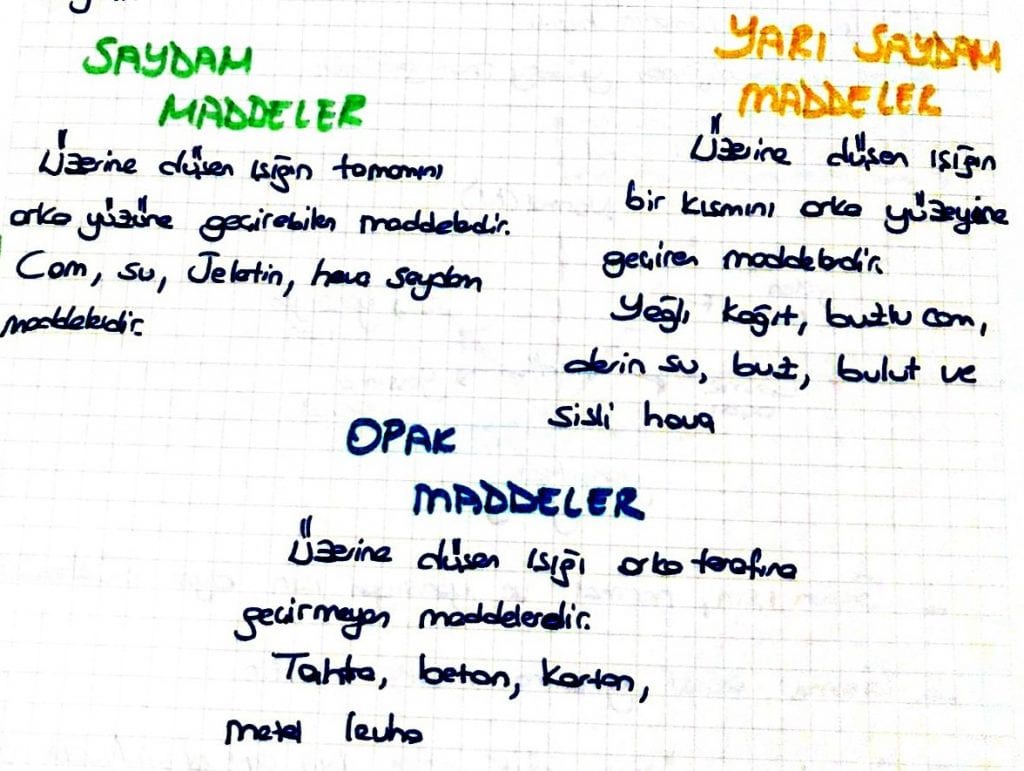 SAYDAM
MADDELER
Üzerine düşen ışığın tamamını
arka yüzüne geçirebilen maddelerdir.
Cam, su, Jelatin, hava saydam
maddelerdir.
YARI SAYDAM
MADDELER
Üzerine düşen ışığın
bir kısmını arka yüzeyine
geçiren maddelerdir.
Yağlı kağıt, buzlu cam,
derin su, buz, bulut ve
sisli hava
OPAK
MADDELER
Üzerine düşen ışığı arka tarafına
geçirmeyen maddelerdir.
Tahta, beton, karton,
metal levha